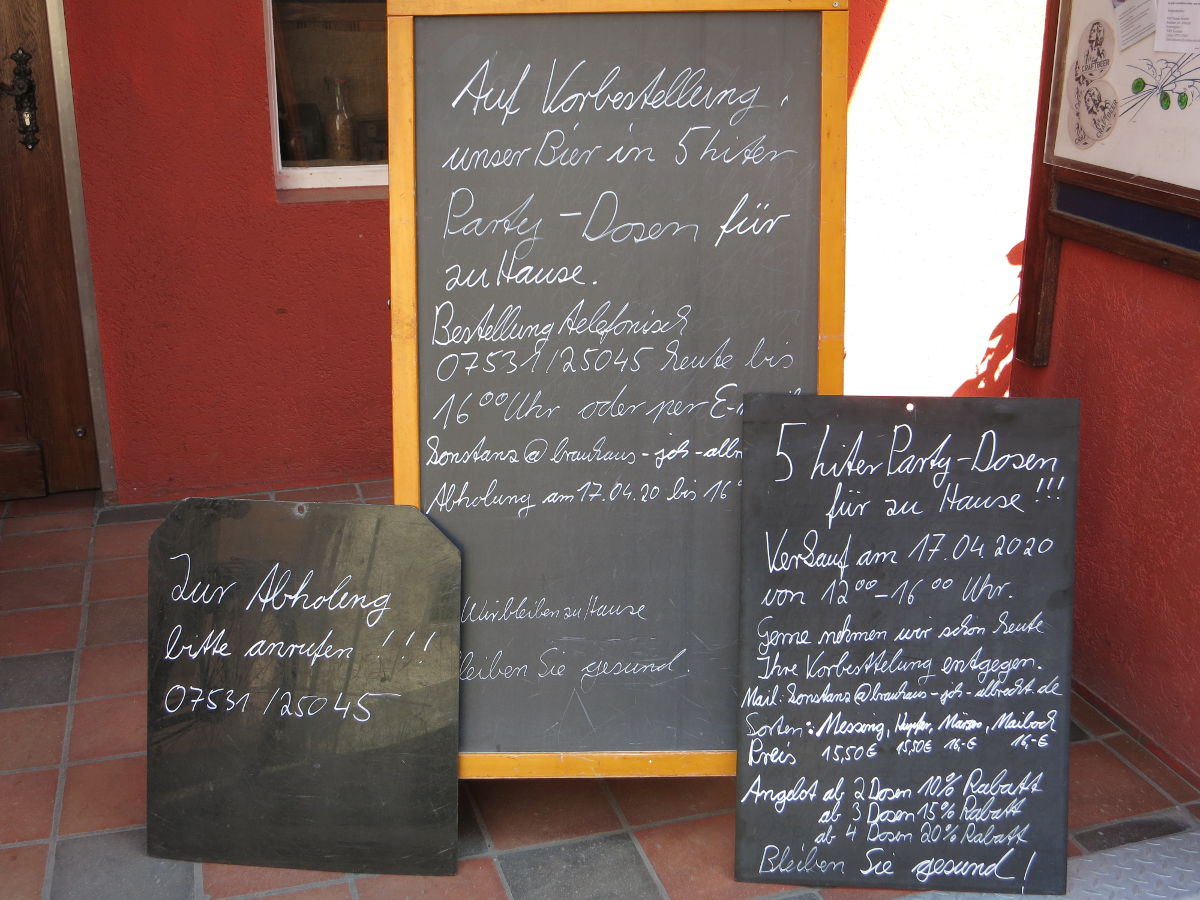 Auf Vorbestellung,
unser Bier in 5 liter
Party-Dosen für
zu Hause.
Bestellung telefonisch
07531/25045 heute bis
16⁰⁰ Uhr oder per E-
konstanz@brauhaus-joh-albr
Abholung am 17.04.20 bis 16
Wir bleiben zu Hause
bleiben Sie gesund.
Zur Abholung
bitte anrufen !!!
07531/25045
5 liter Party-Dosen
für zu Hause!!!
Verkauf am 17.04.2020
von 12⁰⁰-16⁰⁰ Uhr.
Gerne nehmen wir schon heute
Ihre Vorbesttelung entgegen.
Mail: konstanz@brauhaus-joh-albrecht.de
Sorten: Messing, Kupfer, Märzen, Maibock
Preis 15,50€ 15,50€ 16,-€ 16,-€
Angebot ab 2 Dosen 10% Rabatt
ab 3 Dosen 15% Rabatt
ab 4 Dosen 20% Rabatt
Bleiben Sie gesund!
CRAFTBEER